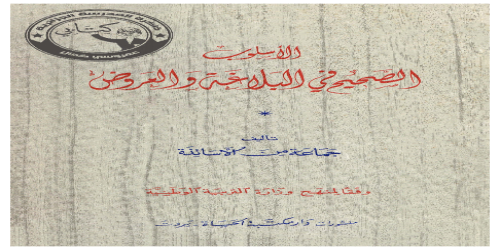 الأسلوب
الصحيح في البلاغة والعروض
تأليف
جماعة من الأساتذة
وفقا لمنهج وزارة التربية الوطنية
منشورات دار مكتبة الحياة بيروت